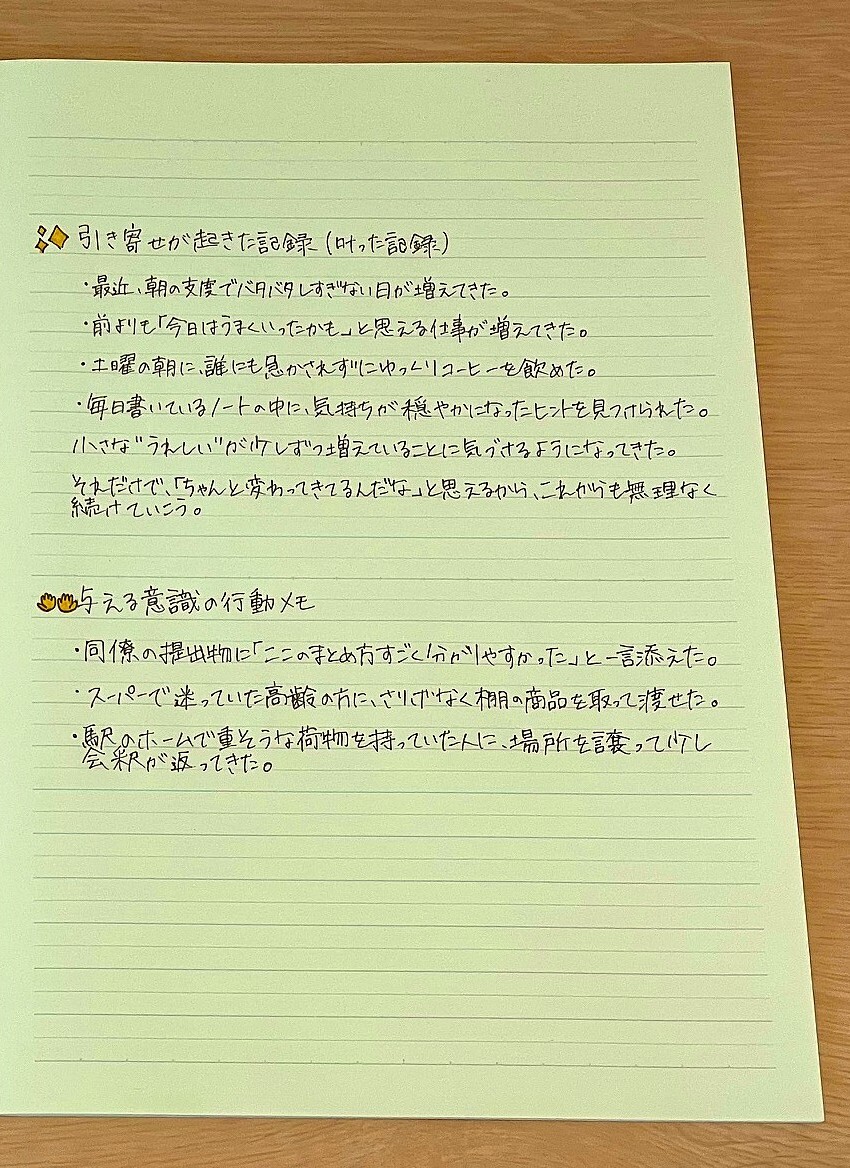 ✨引き寄せが起きた記録（叶った記録）
・最近、朝の支度でバタバタしすぎない日が増えてきた。
・前よりも「今日はうまくいったかも」と思える仕事が増えてきた。
・土曜の朝に、誰にも急かされずにゆっくりコーヒーを飲めた。
・毎日書いているノートの中に、気持ちが穏やかになったヒントを見つけられた。
小さな“うれしい”が少しずつ増えていることに気づけるようになってきた。
それだけで、「ちゃんと変わってきてるんだな」と思えるから、これからも無理なく
続けていこう。
👐与える意識の行動メモ
・同僚の提出物に「ここのまとめ方すごく分かりやすかった」と一言添えた。
・スーパーで迷っていた高齢の方に、さりげなく棚の商品を取って渡せた。
・駅のホームで重そうな荷物を持っていた人に、場所を譲って少し
会釈が返ってきた。